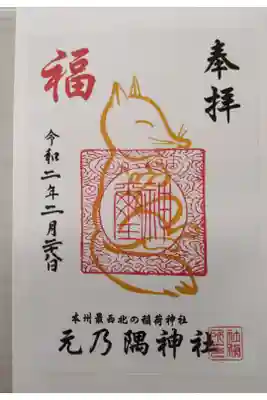 奉拝
福
令和二年二月二十八日
本州最西北の稲荷神社
元乃隅神社